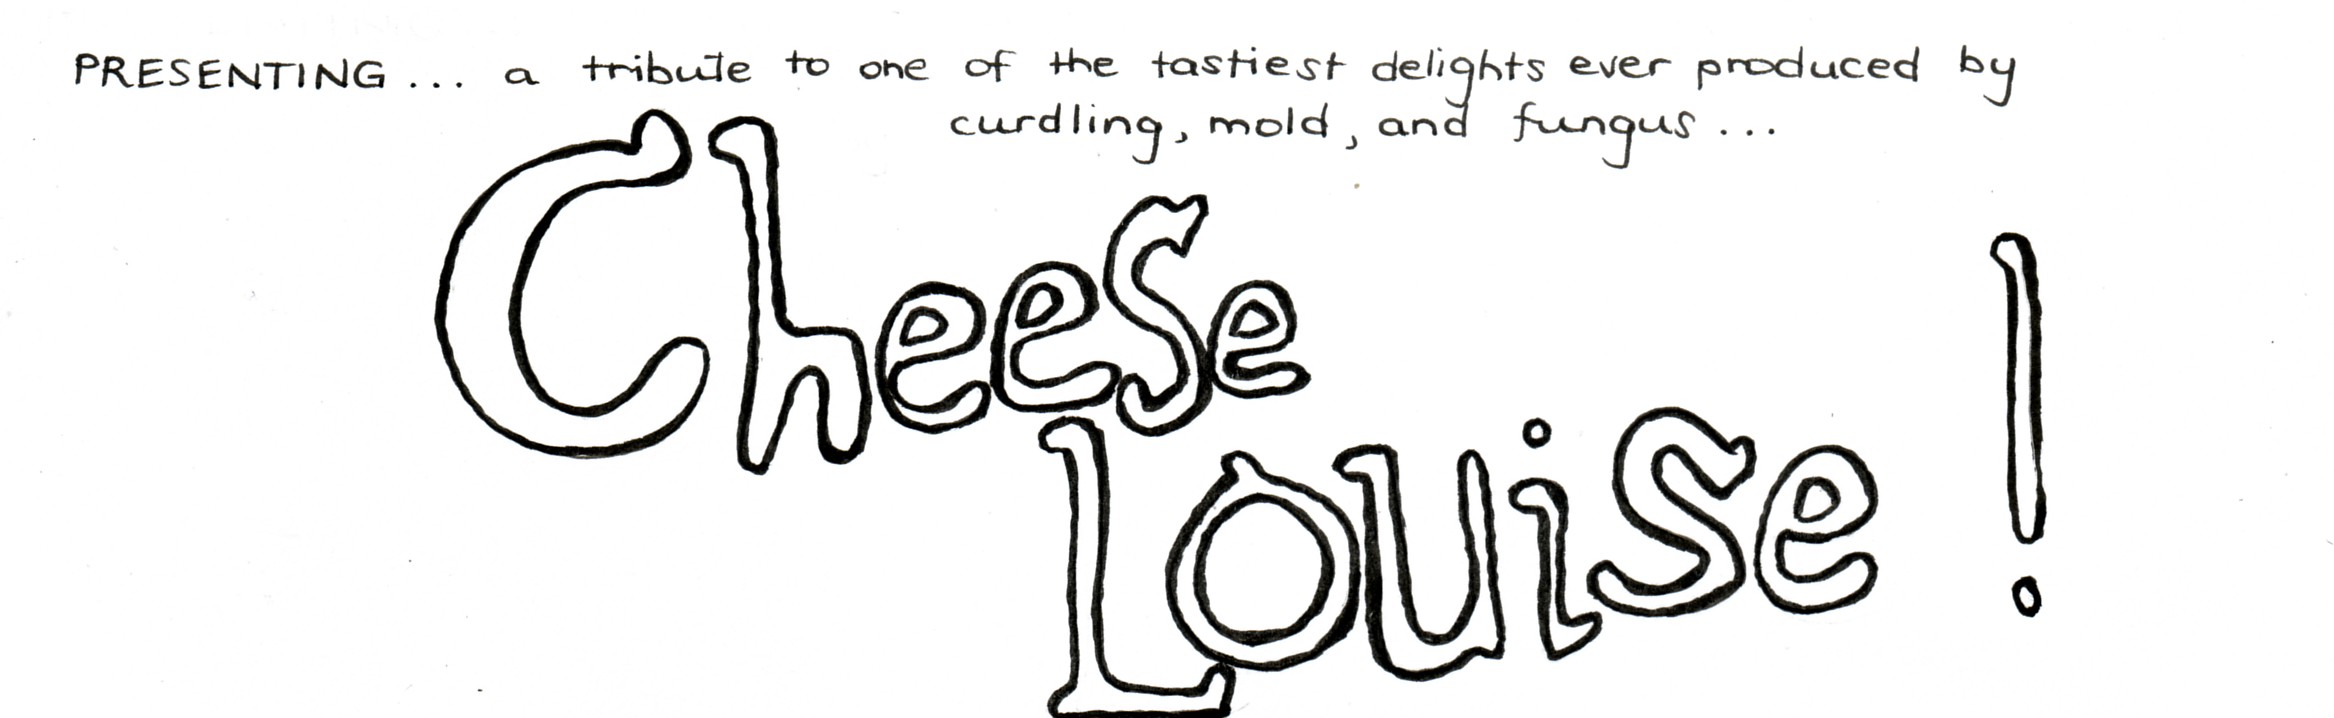 PRESENTING... a tribute to one of the tastiest delights ever produced by
curdling, mold, and fungus...
Cheese
Louise!